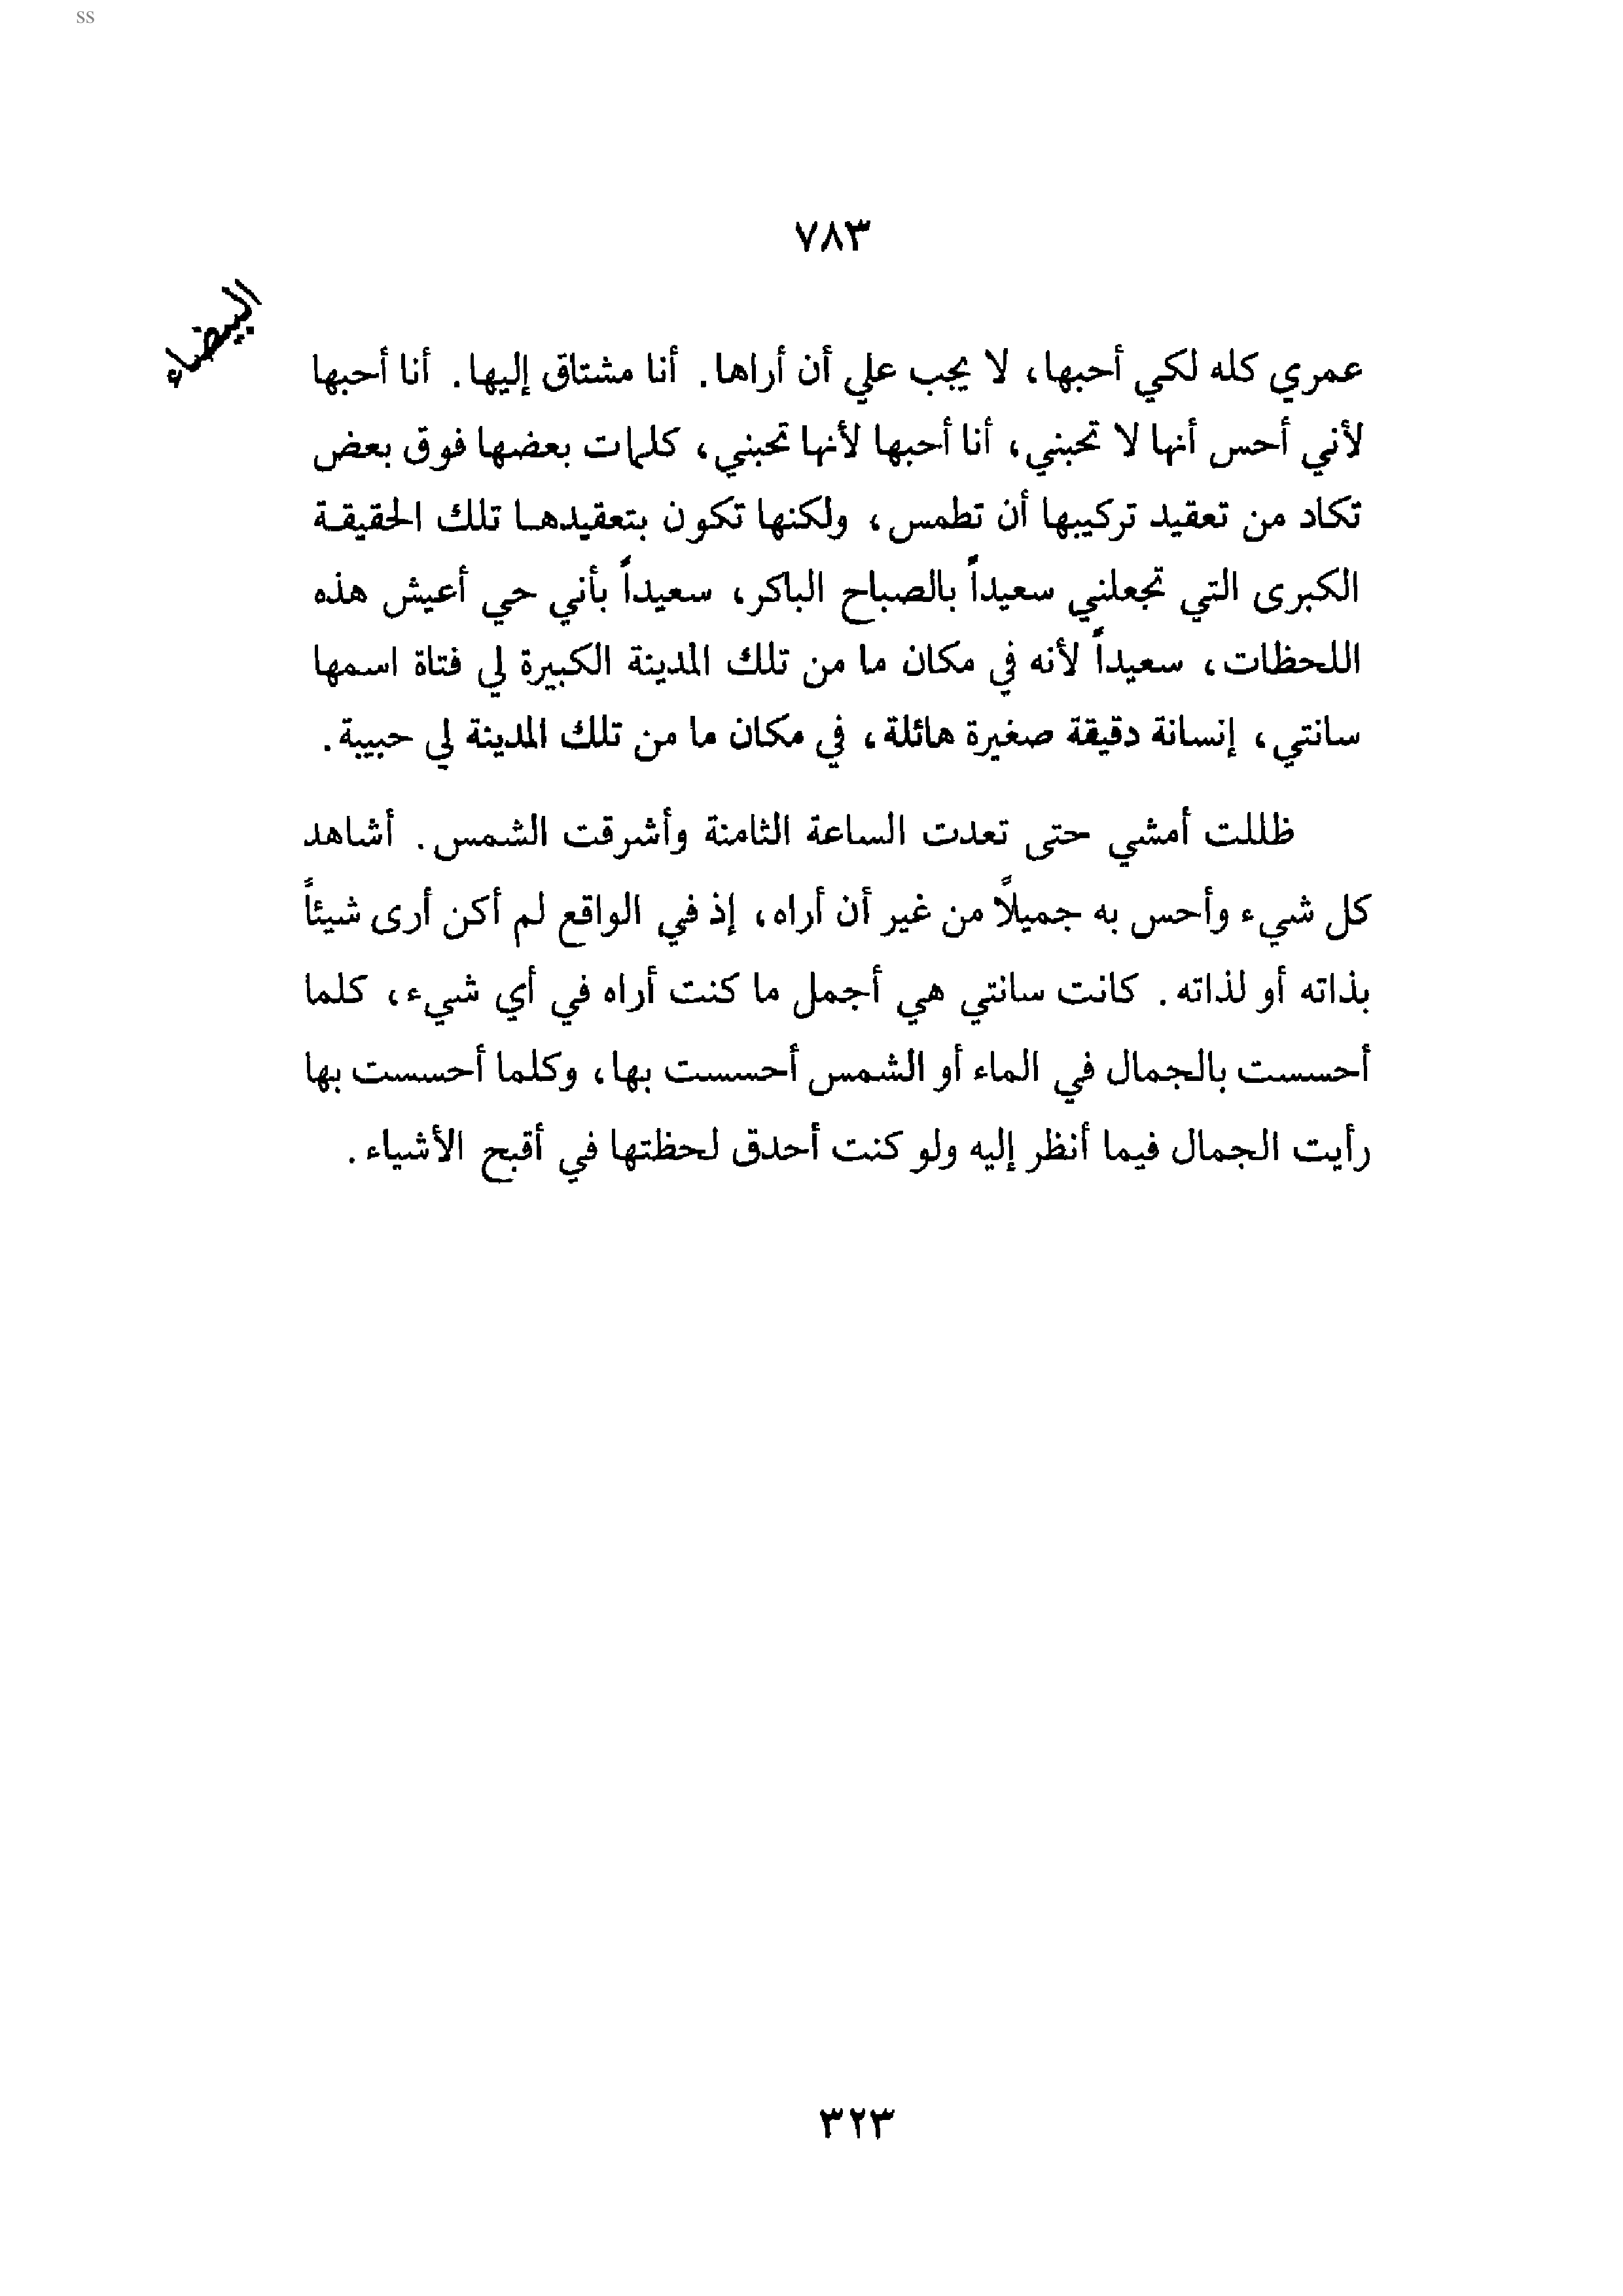 ss
٧٨٣
البيضاء
عمري كله لكي أحبها، لا يجب علي أن أراها. أنا مشتاق إليها. أنا أحبها
لأني أحس أنها لا تحبني، أنا أحبها لأنها تحبني، كلمات بعضها فوق بعض
تكاد من تعقيد تركيبها أن تطمس، ولكنها تكون بتعقيدهـا تلك الحقيقـة
الكبرى التي تجعلني سعيداً بالصباح الباكر، سعيداً بأني حي أعيش هذه
اللحظات، سعيداً لأنه في مكان ما من تلك المدينة الكبيرة لي فتاة اسمها
سانتي، إنسانة دقيقة صغيرة هائلة، في مكان ما من تلك المدينة لي حبيبة.
ظللت أمشي حتى تعدت الساعة الثامنة وأشرقت الشمس. أشاهد
كل شيء وأحس به جميلاً من غير أن أراه، إذ في الواقع لم أكن أرى شيئاً
بذاته أو لذاته. كانت سانتي هي أجمل ما كنت أراه في أي شيء، كلما
أحسست بالجمال في الماء أو الشمس أحسست بها، وكلما أحسست بها
رأيت الجمال فيما أنظر إليه ولو كنت أحدق لحظتها في أقبح الأشياء.
٣٢٣